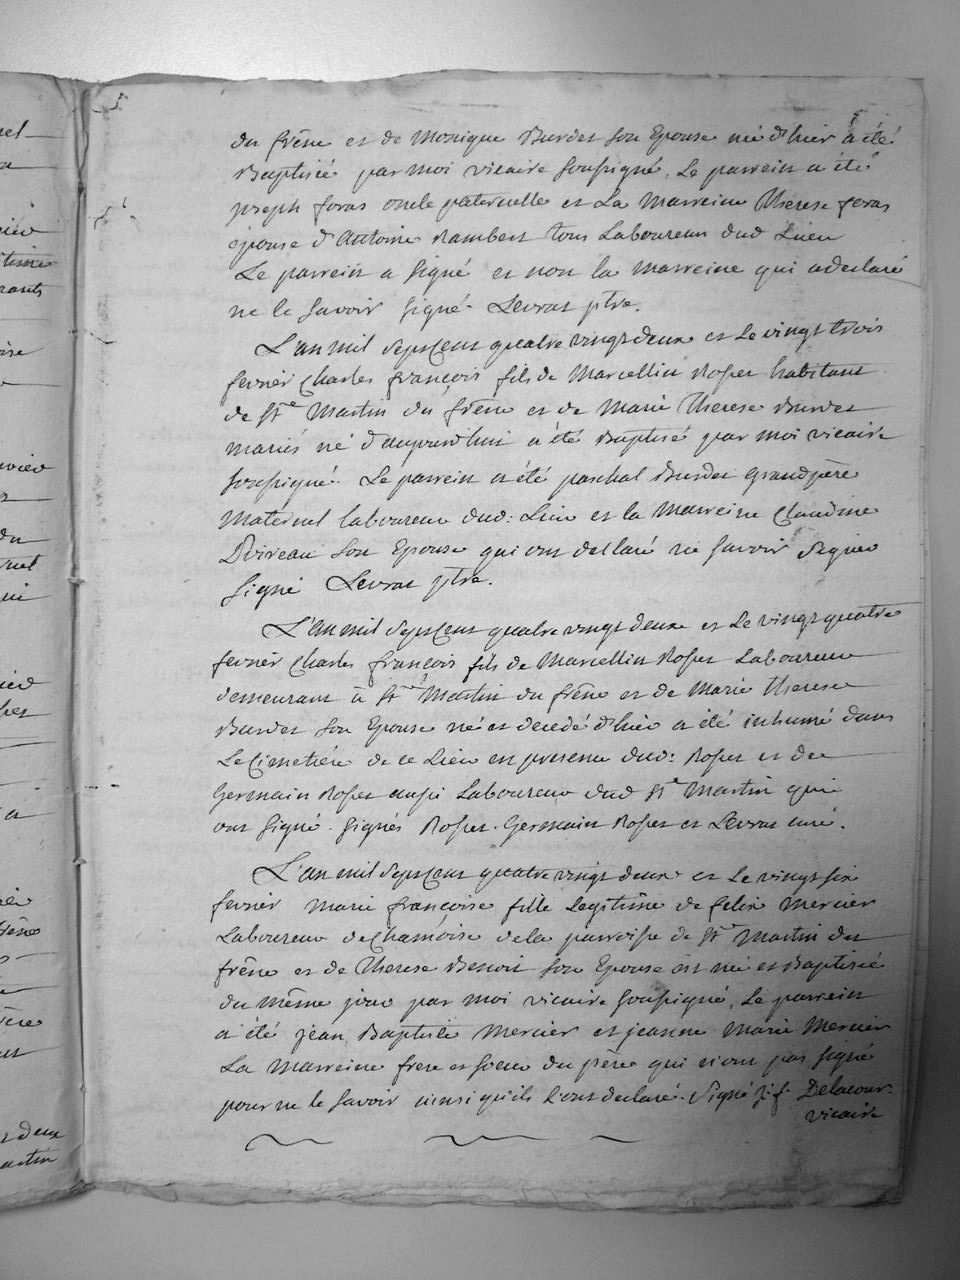 5
du frêne et de Monique Burdet son Epouse né d'hier à été
Baptisé par moi vicaire soussigné. Le parrein a été
joseph foras oncle paternelle et La Marreine Therese foras
epouse d'Antoine Rambert tous Laboureur dud Lieu
Le parrein a signé et non la marreine qui a declaré
ne le savoir signé. Levrat ptre.
L'an mil sept Cent quatre vingt deux et Le vingt trois
fevrier Charles françois fils de Marcellin Rosset habitant
de St Martin du frêne et de Marie Therese Burdet
mariés né d'aujourd'huit a été Baptisé par moi vicaire
soussigné. Le parrein a été paschal Burdet Grandpère
Maternel laboureur dud: Lieu et la Marreine Claudine
son Epouse qui ont declaré ne savoir Signer
signé Levrat ptre.
L'an mil sept Cent quatre vingt deux et Le vingt quatre
fevrier Charles françois fils de Marcellin Rosset Laboureur
demeurant à St Martin du frêne et de Marie therese
Burdet son Epouse né et decedé d'hier a été inhumé dans
Le Cimetiére de ce Lieu en presence dud: Rosset et de
Germain Rosset aussi Laboureur dud St Martin qui
ont signé. signés Rosset. Germain Rosset et Levrat curé.
L'an mil sept Cent quatre vingt deux et Le vingt six
fevrier Marie françoise fille Legitime de felix Mercier
Laboureur de Chamoise de la parroisse de St Martin du
frêne et de Therese Benoit son Epouse est née et Baptisée
du même jour par moi vicaire soussigné, Le parrein
a été jean Baptiste Mercier et jeanne Marie Mercier
La Marreine frere et soeur du père qui n'ont pas signé
pour ne le savoir ainsi qu'ils l'ont declaré. Signé j. f. Delacour.
vicaire